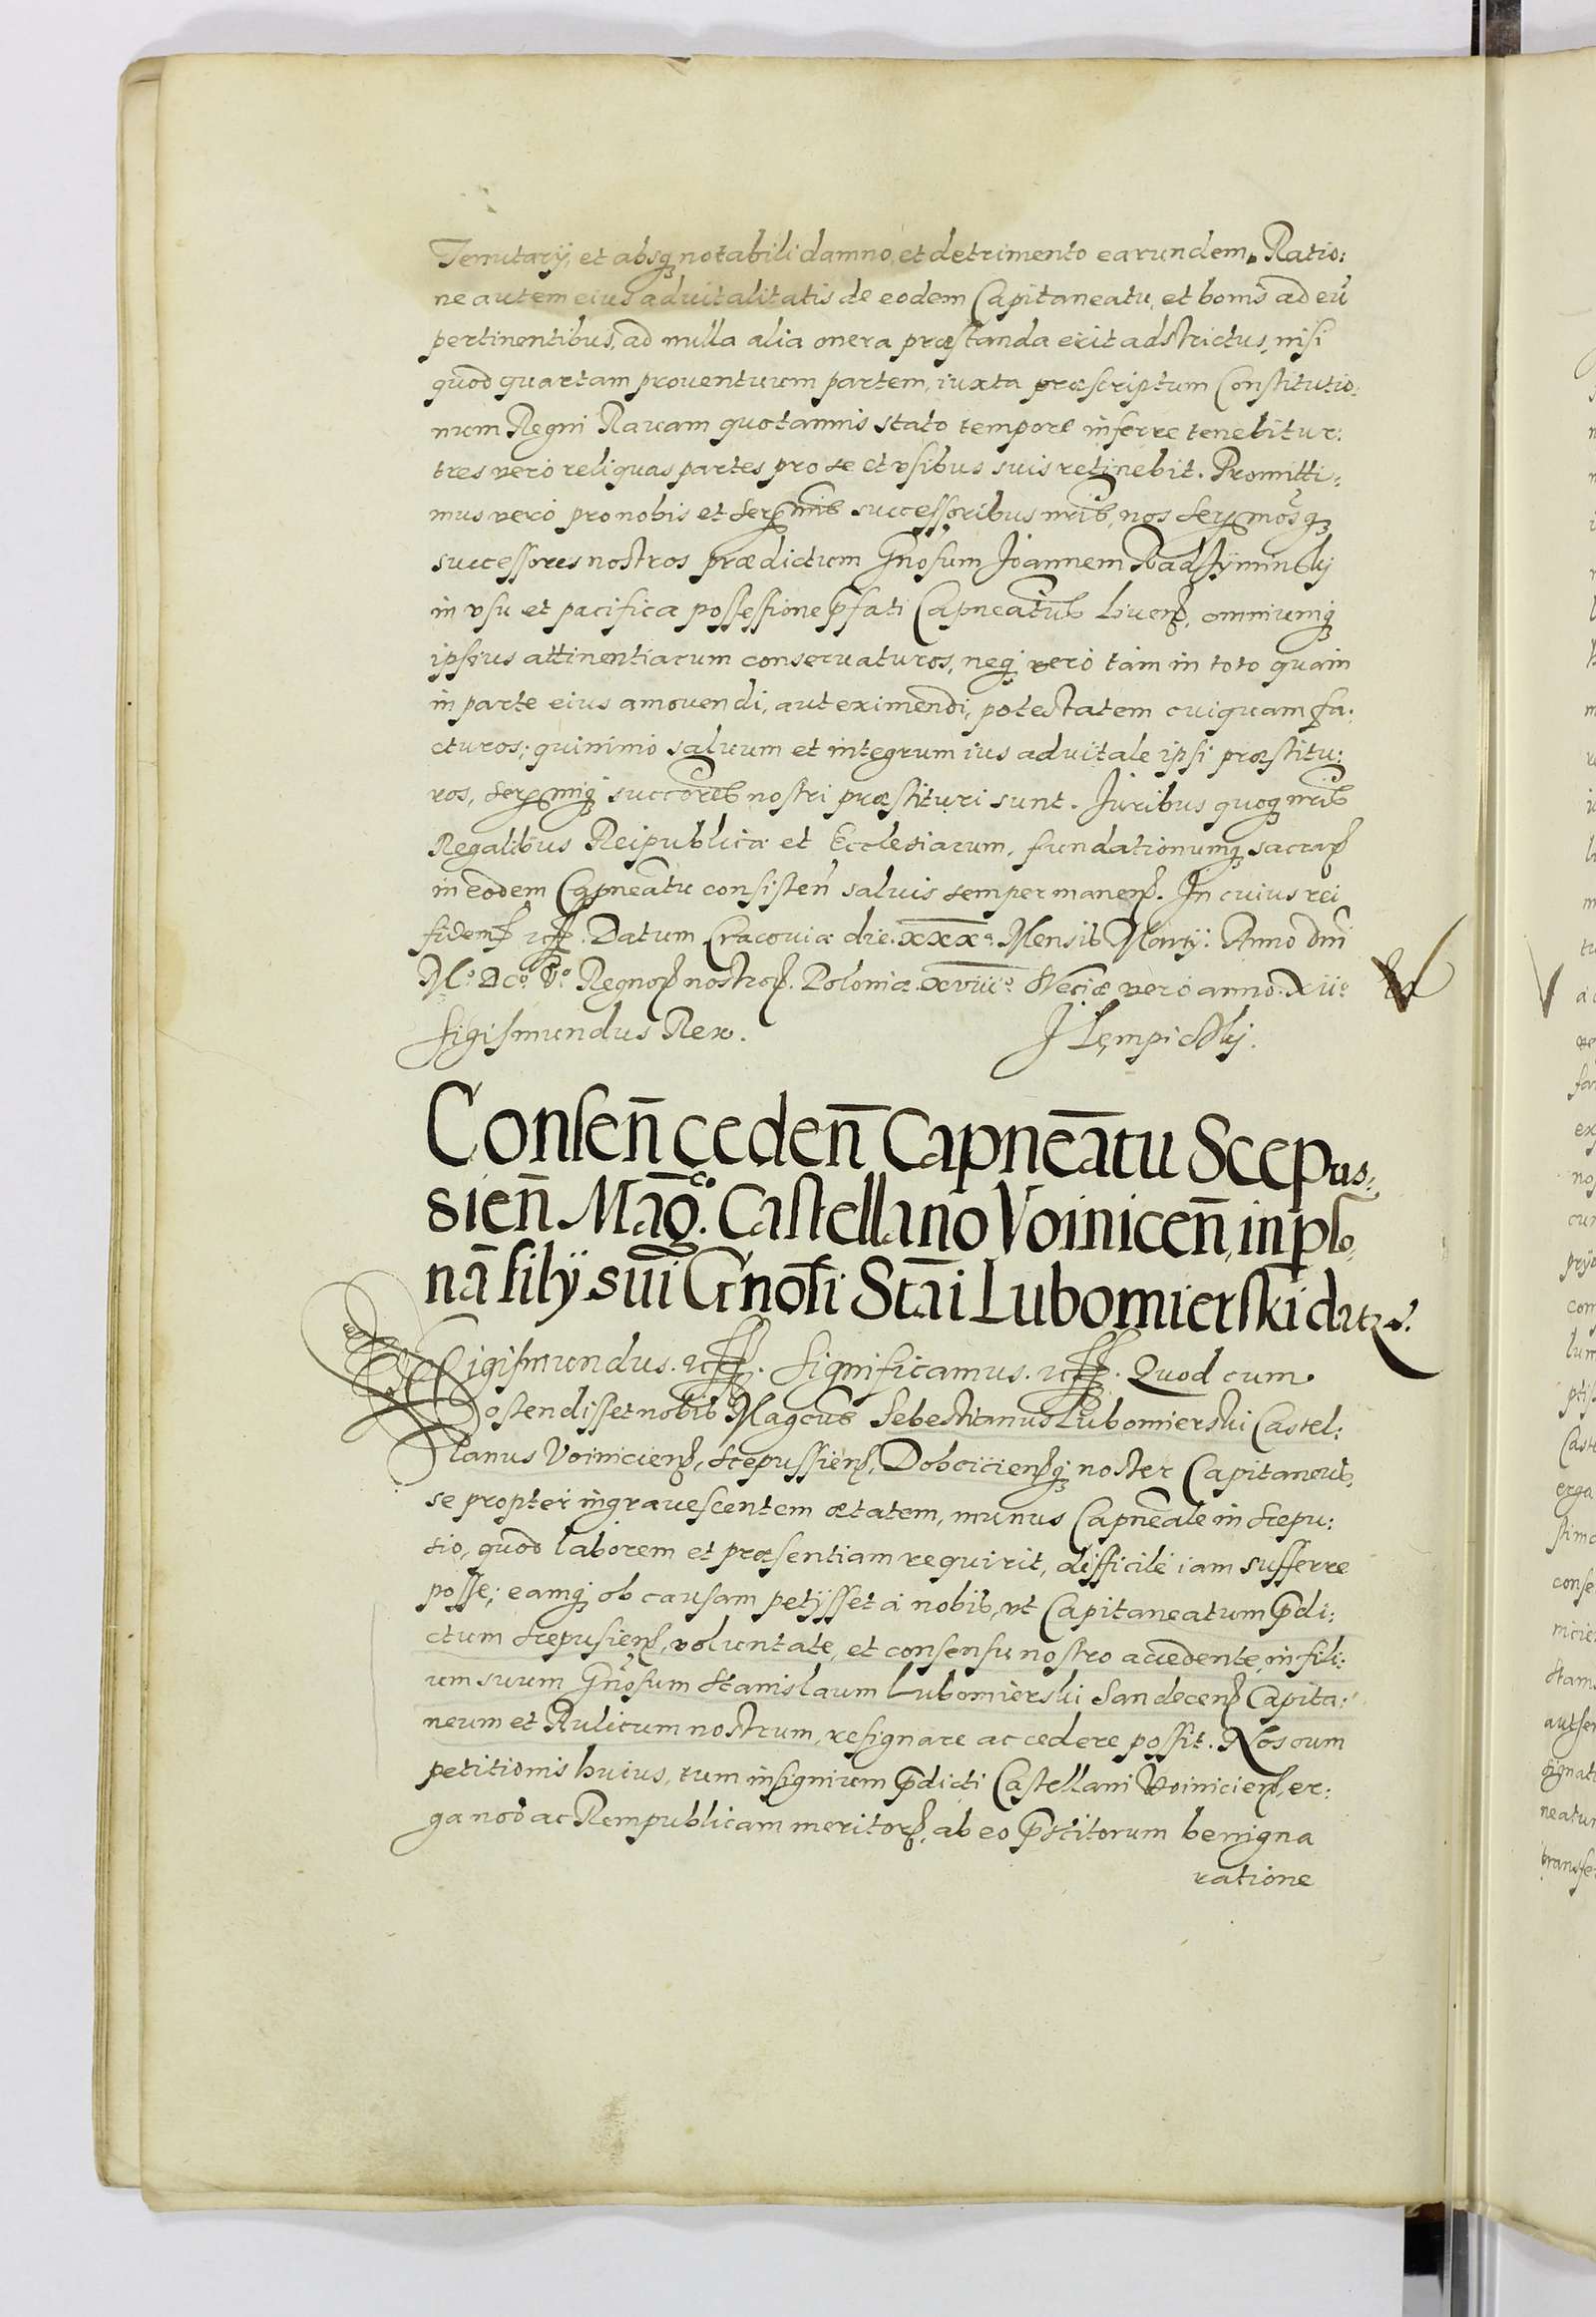 Tenutarij, et absq notabili damno, et detrimento earundem. Ratio:
ne autem eius aduitalitatis de eodem Capitaneatu, et bonis ad eū
pertinentibus, ad nulla alia onera præstanda erit adstrictus, nisi
quod quartam prouentuum partem, iuxta præscriptum Constitutio:
num Regni Rauam quotannis stato tempore inferre tenebitur:
tres vero reliquas partes pro se et vsibus suis retinebit. Promitti:
mus vero pro nobis et Sermis successoribus nris, nos Sermosq
successores nostros prædictum Gnosum Joannem
in vsu et pacifica possessione pfati Capneatus Liuen, omniumq
ipsius attinentiarum conseruaturos, neq vero tam in toto quam
in parte eius amouendi, aut eximendi, potestatem cuiquam fa:
cturos; quinimo saluum et integrum ius aduitale ipsi præstitu:
ros, Sermiq succores nostri præstituri sunt. Juribus quoq nris
Regalibus Reipublicæ et Ecclesiarum, fundationumq sacrar
in eodem Capneatu consisten saluis semper manen. In cuius rei
fidem etc. Datum Cracouiæ die. xxxa. Mensis Martij. Anno Dni
Mo. Dco. Vo. Regnor nostror. Poloniæ. xviiio. Sueciæ vero anno. xiio.
Sigismundus Rex. J Lempicskij.
Consen̄ ceden̄ Capneātu Scepus:
sien̄ Māgco. Castellano Voinicen̄, in pso:
nā filij sui Gnosi Stāi Lubomierski datæ.
Sigismundus. etc. Significamus. etc. Quod cum
ostendisset nobis Magcus Sebestianus Lubomierski Castel:
lanus Voinicien, Scepussien, Dobcicienq noster Capitaneus,
se propter ingrauescentem ætatem, munus Capneale in Scepu:
sio, quod laborem et præsentiam requirit, difficile iam sufferre
posse; eamq ob causam petijsset a nobis, vt Capitaneatum pdi:
ctum Scepusien, voluntate, et consensu nostro accedente, in fili:
um suum Gnosum Stanislaum Lubomierski Sandecen Capita:
neum et Aulicum nostrum, resignare ac cedere possit. Nos cum
petitionis huius, tum insignium pdicti Castellani Voinicien, er:
ga nos ac Rempublicam meritor, ab eo pstitorum benigna
ratione